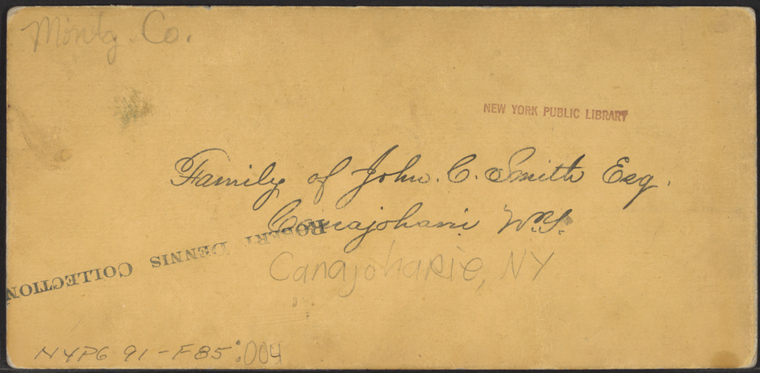 Montg. Co.
NEW YORK PUBLIC LIBRARY
Family of John. C. Smith Esq.
Canajoharie N.Y.
ROBERT DENNIS COLLECTION
Canajoharie, NY
NYPG 91-F85:004